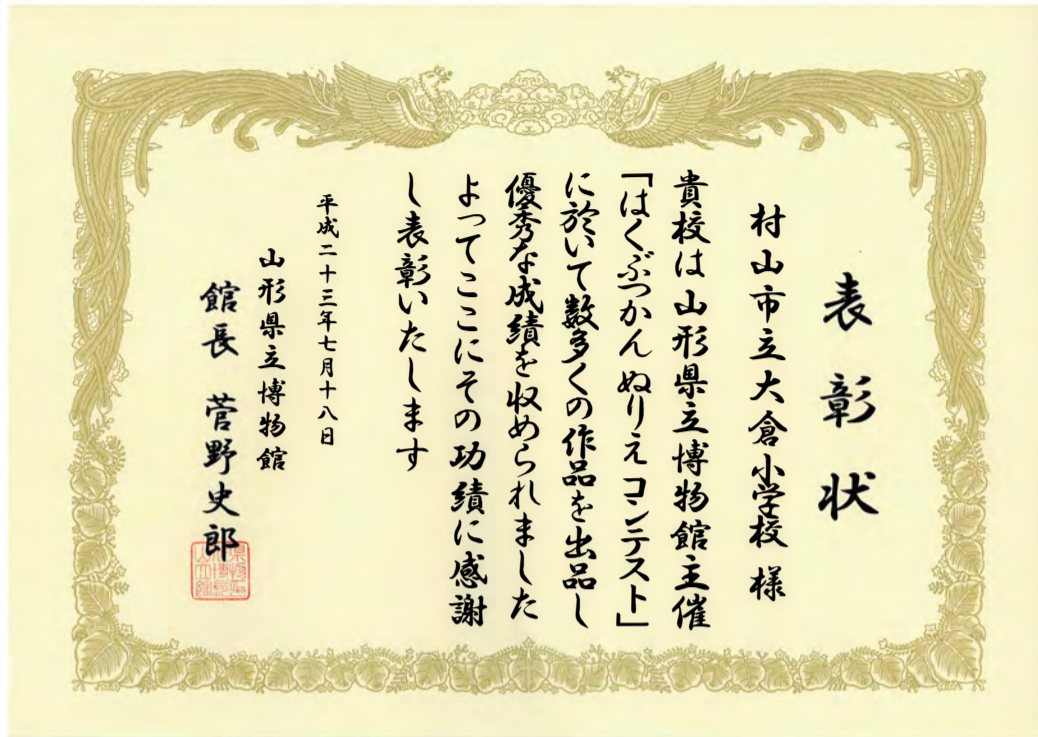 表彰状
村山市立大倉小学校 様
貴校は山形県立博物館主催
「はくぶつかんぬりえコンテスト」
に於いて数多くの作品を出品し
優秀な成績を収められました
よってここにその功績に感謝
し表彰いたします
平成二十三年七月十八日
山形県立博物館
館長 菅野史郎